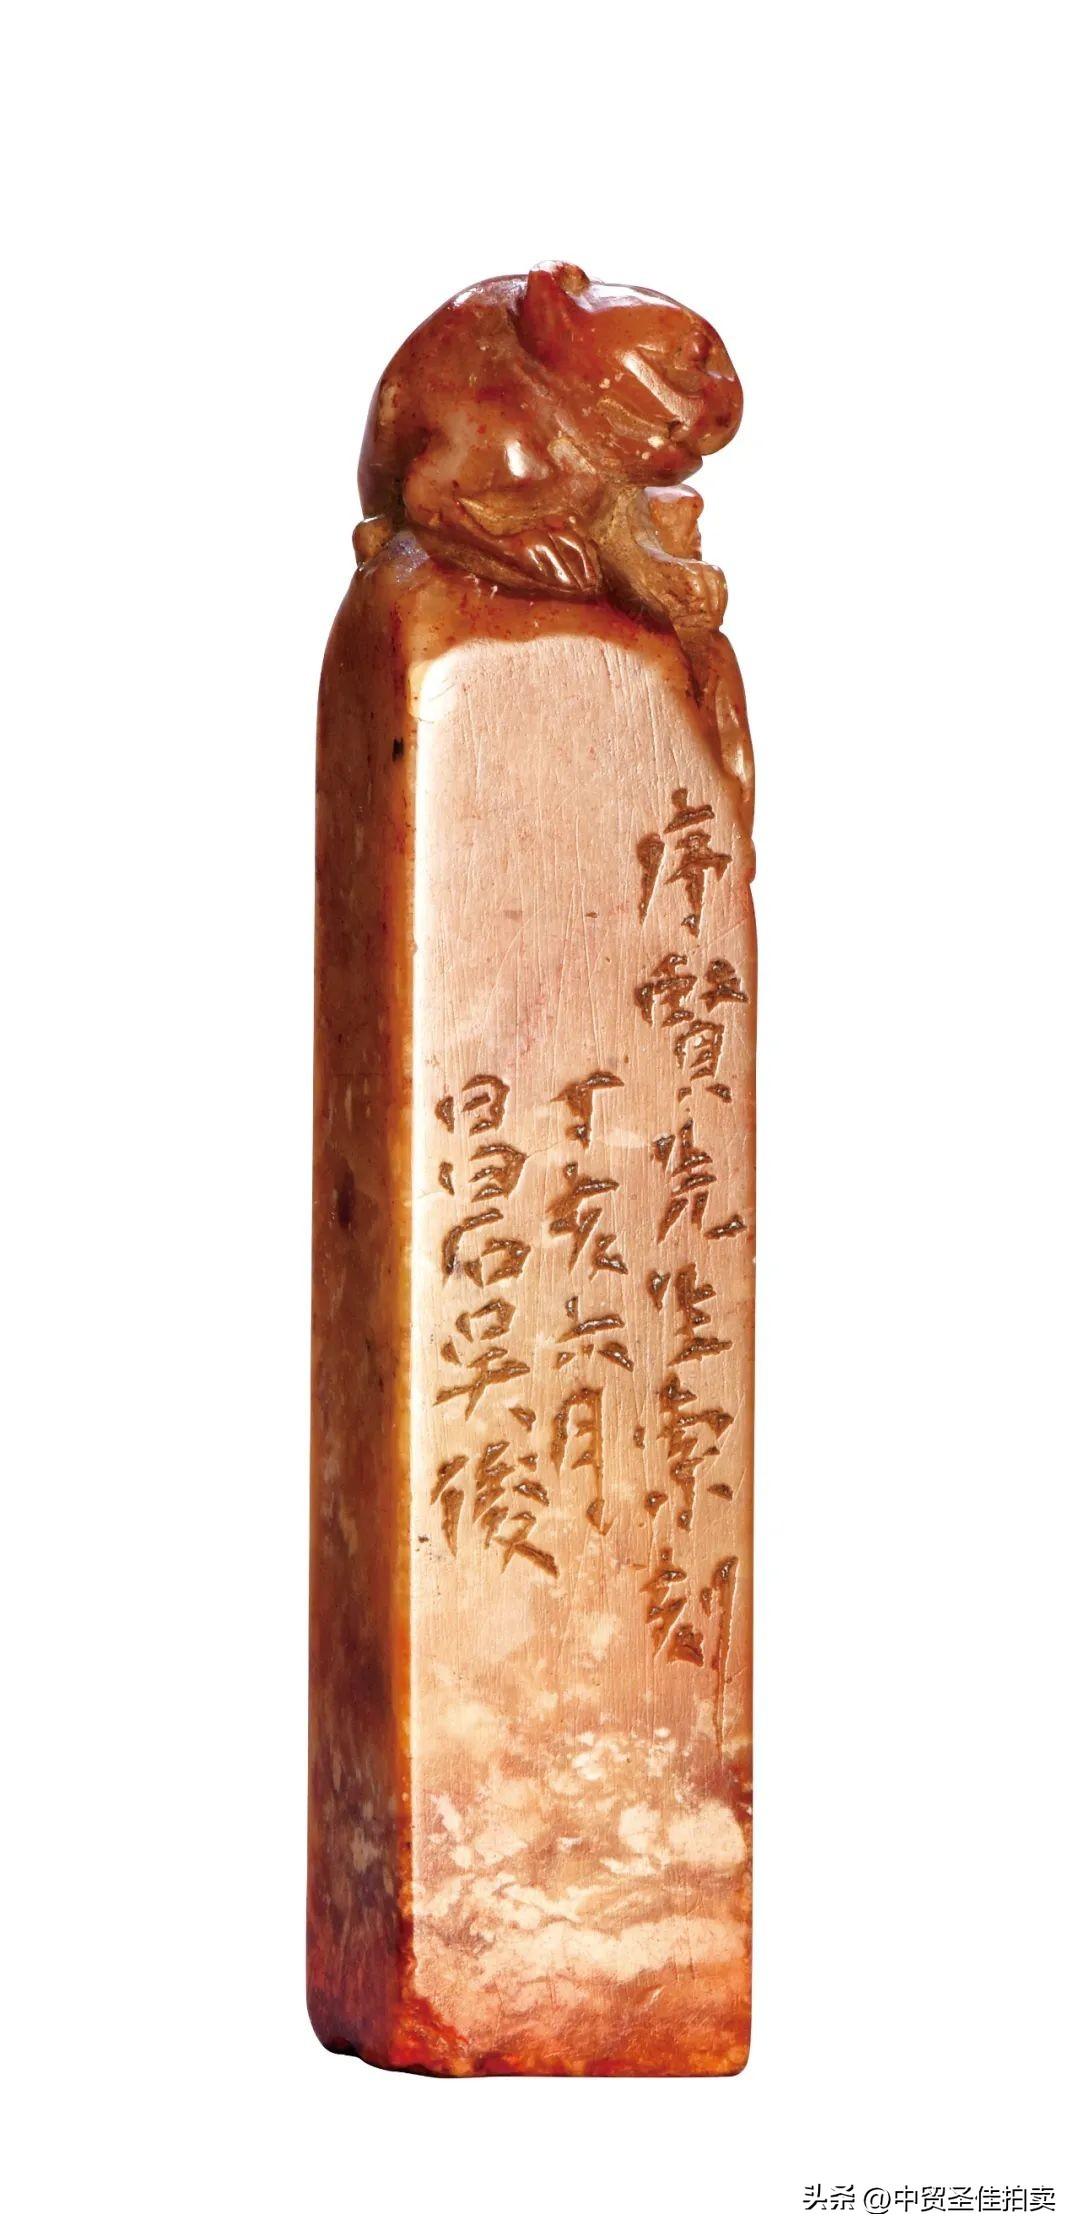 序賢先生索刻
丁亥六月
昌石吴俊
头杀 @中贸圣佳拍卖